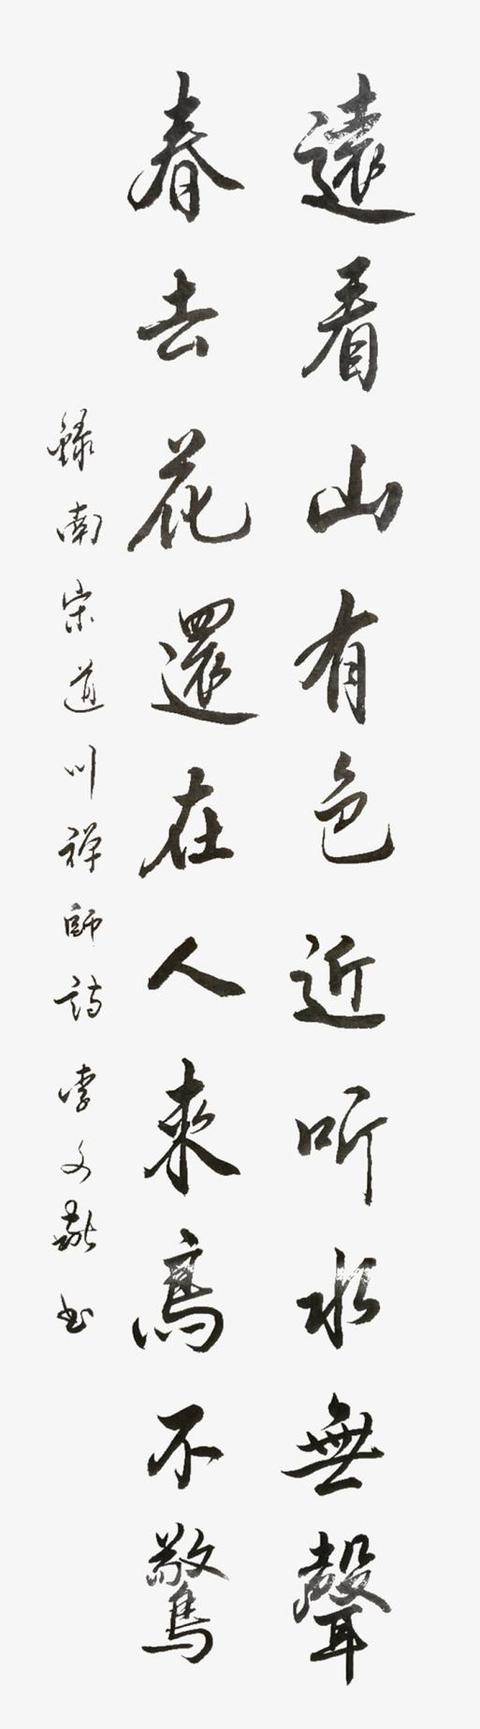 遠看山有色近听水無聲
春去花還在人來鳥不驚
錄南宋道川禅師詩李文獻书